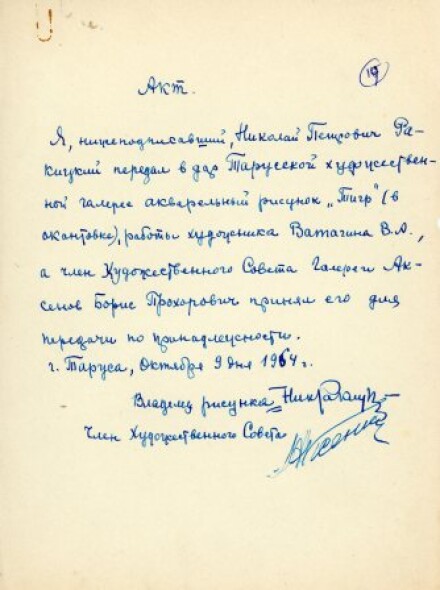 19
Акт.
Я, нижеподписавший, Николай Петрович Ра-
кицкий передал в дар Тарусской художествен-
ной галерее акварельный рисунок „Тигр" (в
окантовке), работы художника Ватагина В.А.,
а член Художественного Совета Галереи Ак-
сенов Борис Прохорович принял его для
передачи по принадлежности.
г. Таруса, Октября 9 дня 1964 г.
Владелец рисунка
Член Художественного Совета